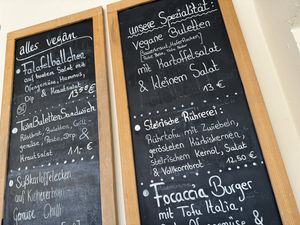 alles vegan
Falafelbällchen
auf buntem Salat mit
Ofengemüse, Hummus,
Dip & Krautsalat
13 €
Buletten Sandwich
Krautsalat 11,- €
Süßkartoffelecken
auf Kichererbsen
Gemüse Chilli
unsere Spezialität:
Vegane Buletten
mit Kartoffelsalat
& kleinem Salat
13 €
Steirische Rührerei:
Rührtofu mit Zwiebeln,
gerösteten Kürbiskernen,
steirischem Kernöl, Salat
& Vollkornbrot 12,50 €
Focaccia Burger
mit Tofu Italia,